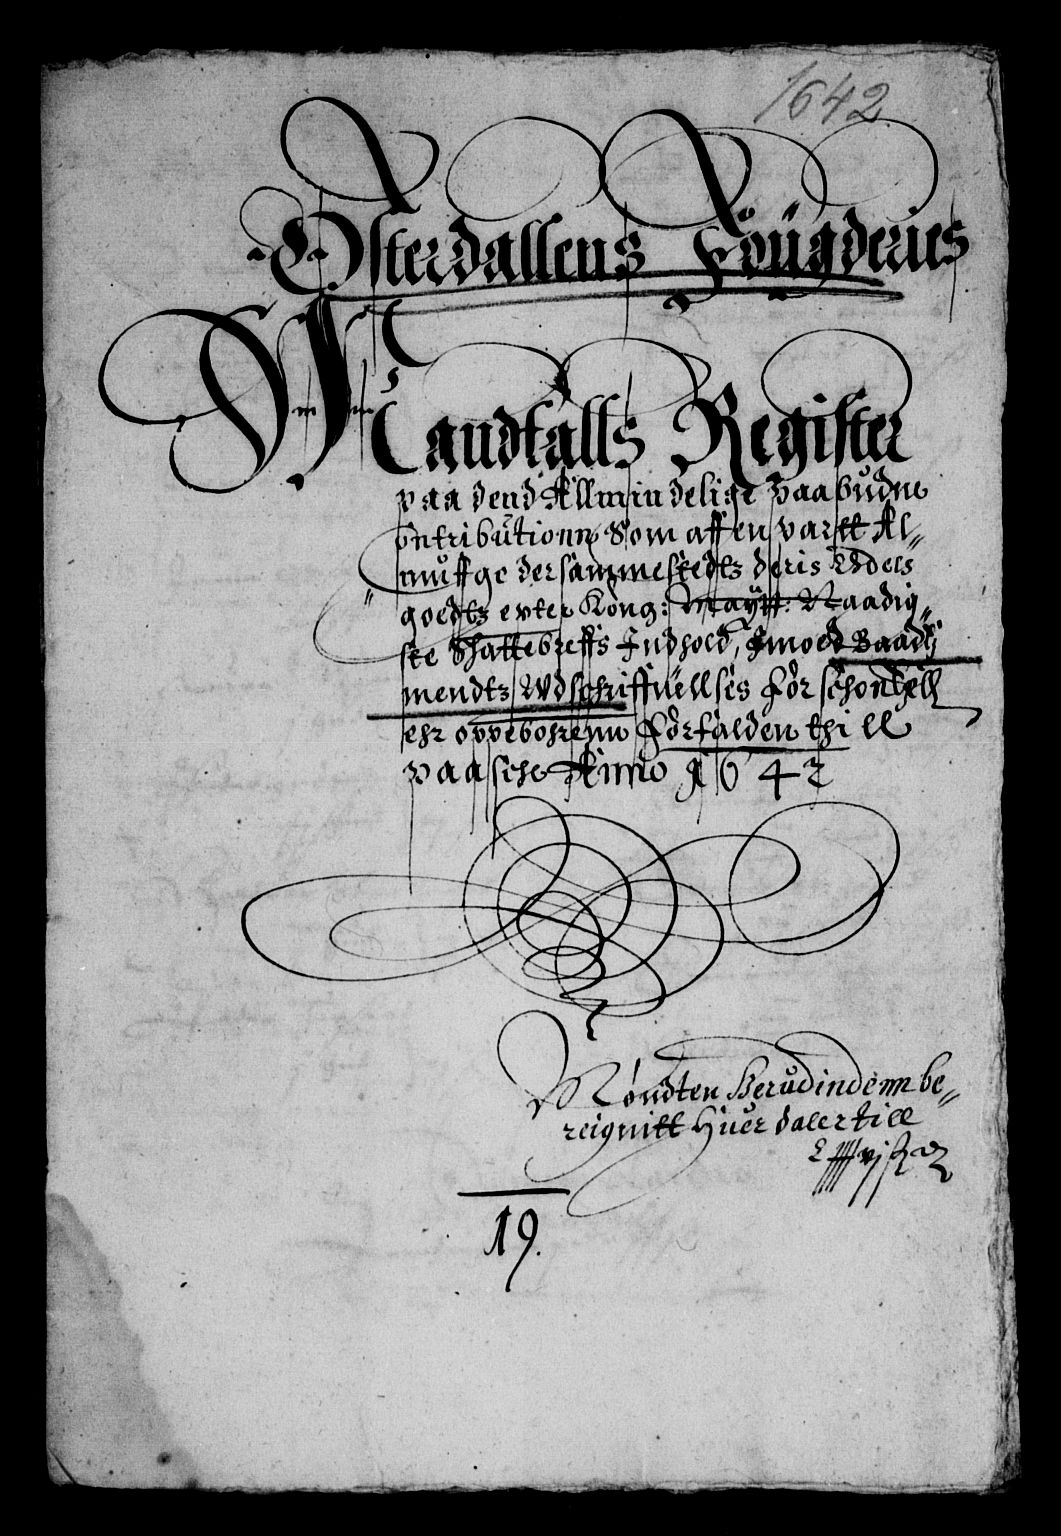 1642
Østerdallens Fougderies
Mandtalls Register
paa dend Allmindelige paabudne
Contribution Som aff en partt Al-
muffge dersammestedtz deris Odels
goedtz epter Kong: Maytt: Naadig-
ste Skattebreffs Indhold, Imod Baadtz
mendtz Udschriffuellsis forschonhell
ehr oppebohrenn Forfalden thill
paasche Anno 1642
Møndten Herudindenn be-
reignitt Huer daler till
19.